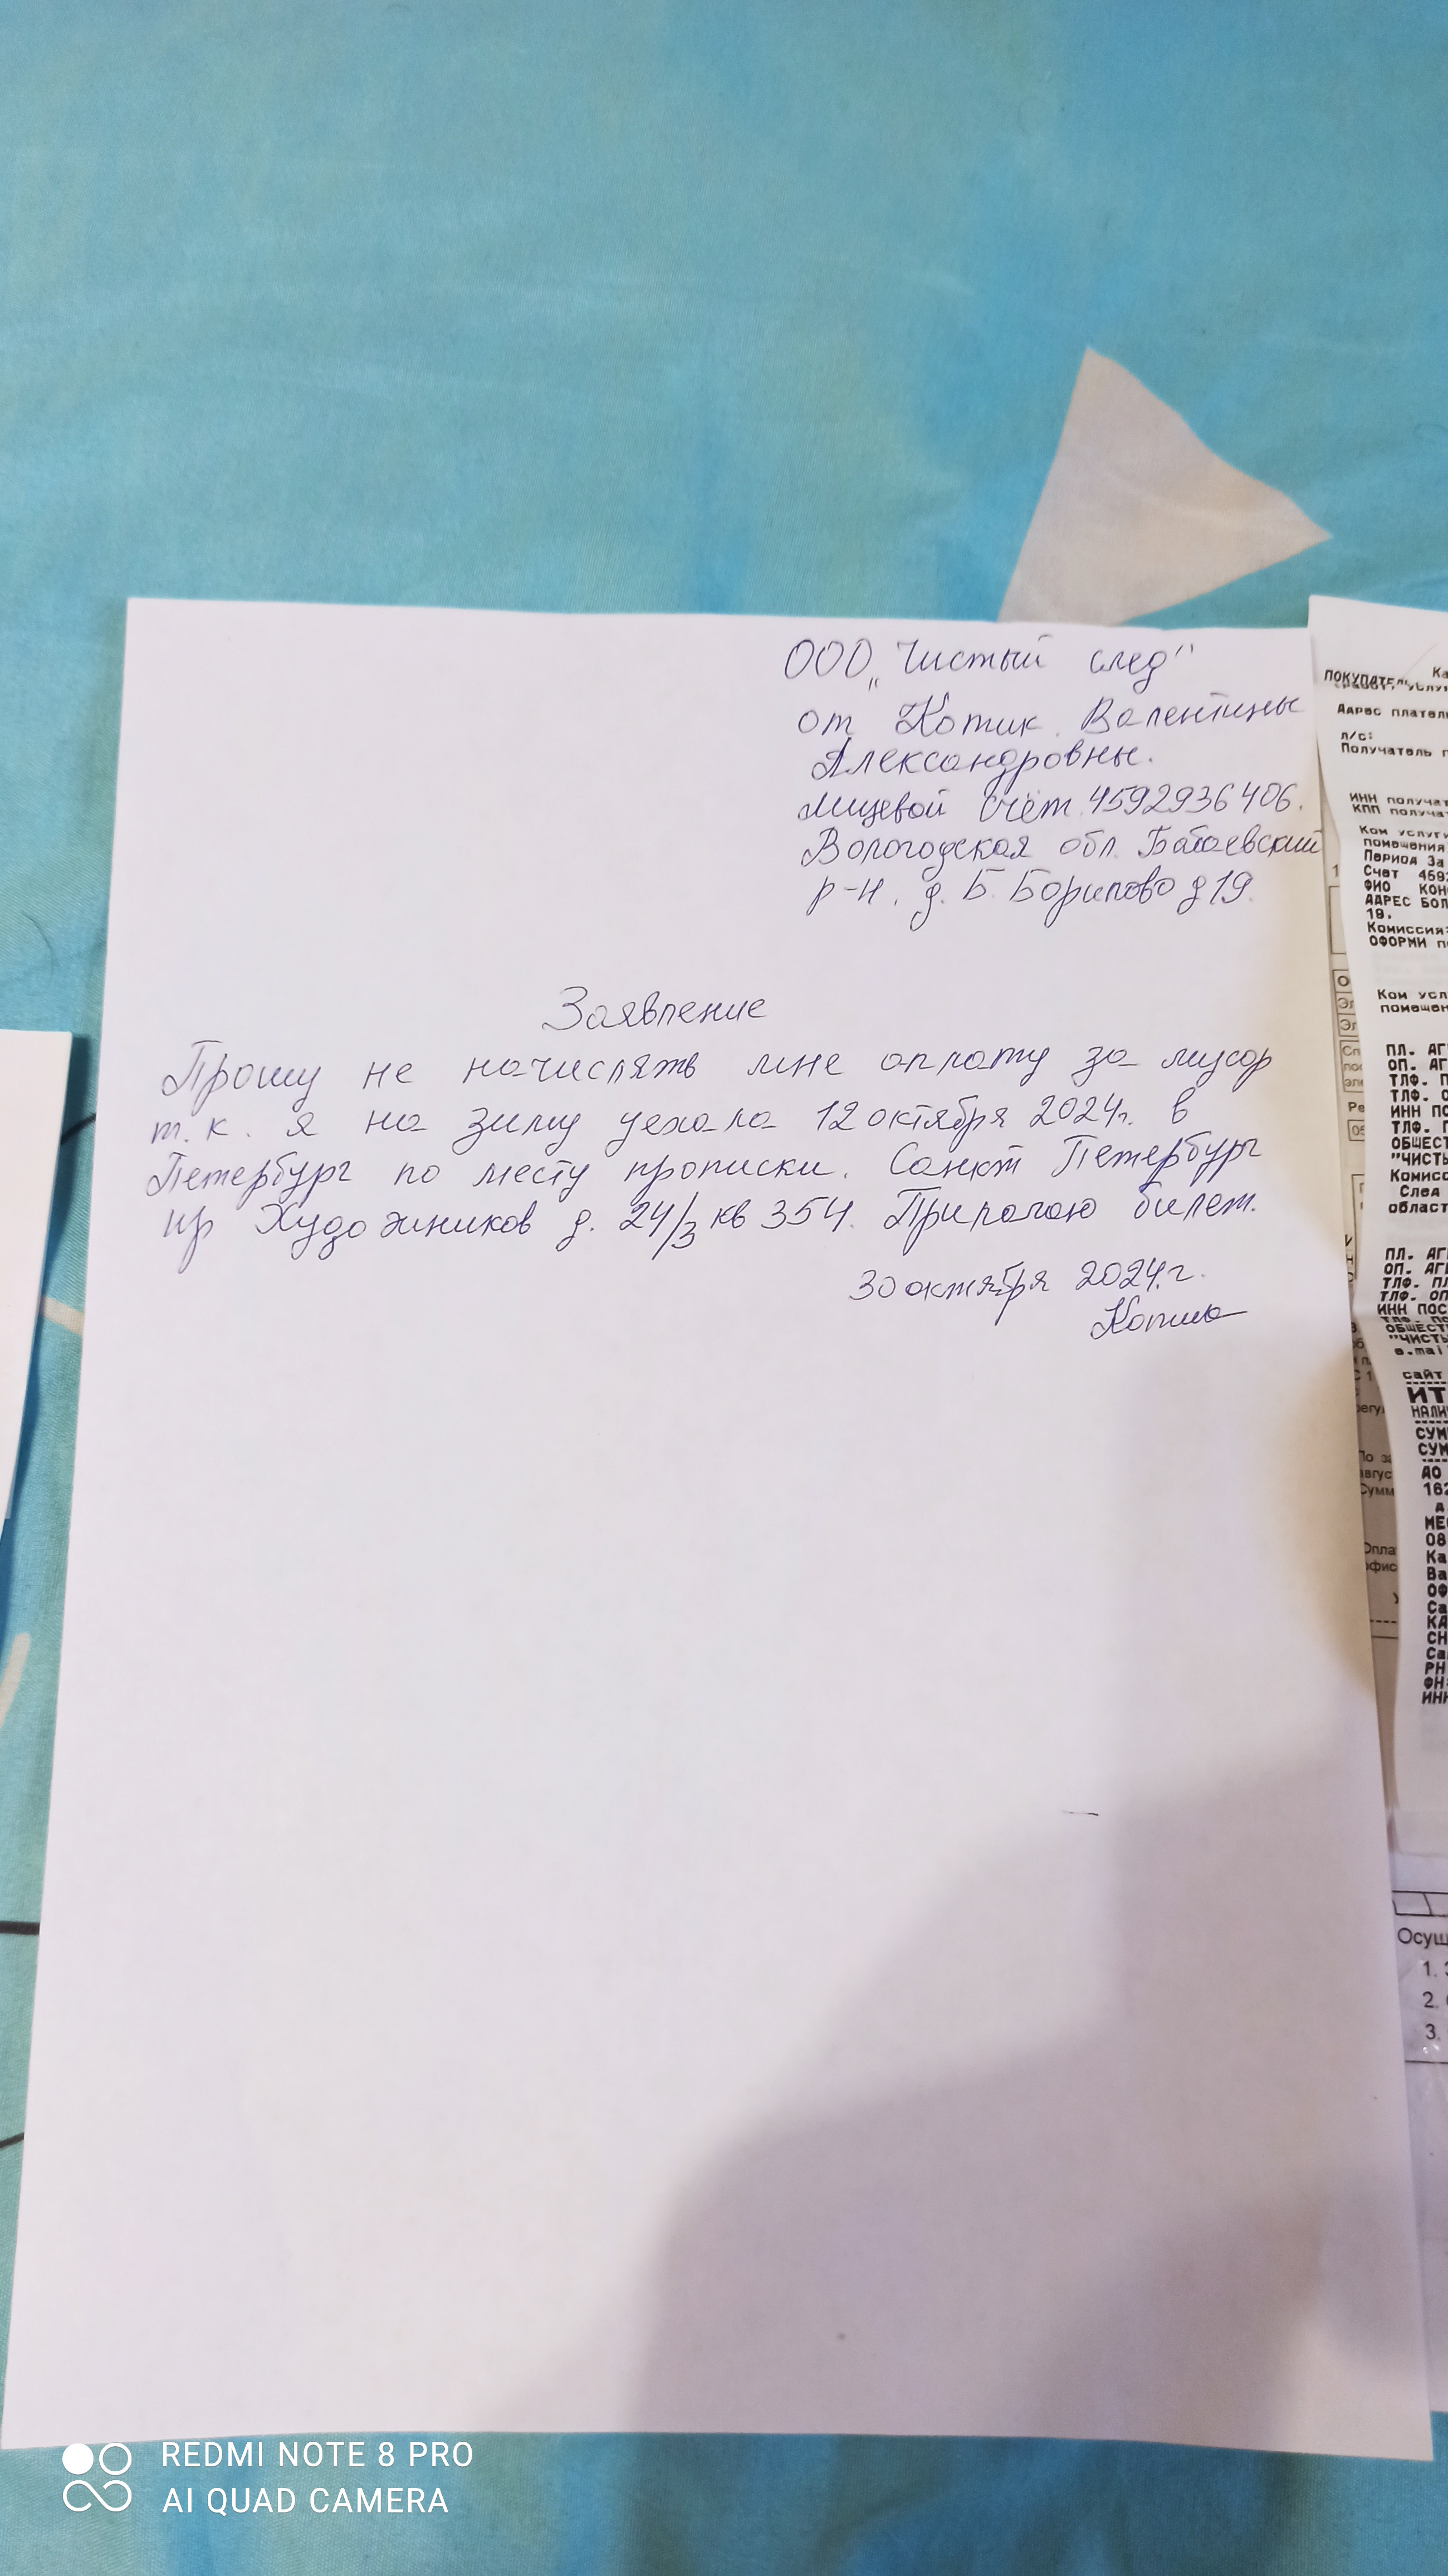 ООО „Чистый след"
от Котик Валентины
Александровны.
лицевой счёт 4592936406.
Вологодская обл. Бабаевский
р-н. д. Б. Борисово д 19.
Заявление
Прошу не начислять мне оплату за мусор
т. к. я на зиму уехала 12 октября 2024г. в
Петербург по месту прописки. Санкт Петербург
пр Художников д. 24/3 кв 354. Прилагаю билет.
30 октября 2024.г.
Котик
Ка
ПОКУПАТЕЛ
Адрес плател
л/с:
Получатель п
ИНН получат
КПП получа
Ком услуг
помещения
Период За
Счет 459
ФИО КОН
АДРЕС БОЛ
19.
Комиссия:
ОФОРМИ п
Ком усл
помещен
ПЛ. АГ
ОП. АГ
ТЛФ. П
ТЛФ. О
ИНН ПО
ТЛФ. П
ОБЩЕСТ
"ЧИСТЬ
Комисс
След
област
ПЛ. АГ
ОП. АГ
ТЛФ. ПЛ
ТЛФ. ОП
ИНН ПОС
ОБЩЕСТ
"ЧИСТЬ
e.mai
сайт
ИТ
НАЛИ
СУМ
СУМ
ДО
162
МЕ
08
Ка
Ва
ОФ
Са
КА
СН
Са
РН
ФН
ИНН
Осущ
1. З
2.
3.
REDMI NOTE 8 PRO
AI QUAD CAMERA